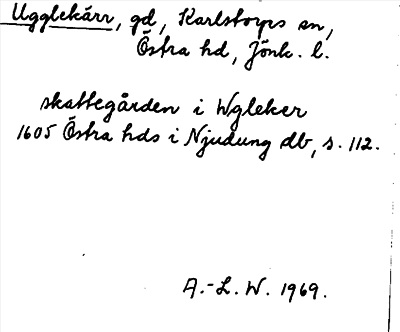 Ugglekärr, gd, Karlstorps sn,
Östra hd, Jönk. l.
skattegården i Wgleker
1605 Östra hds i Njudung db, s. 112.
A.-L. W. 1969.